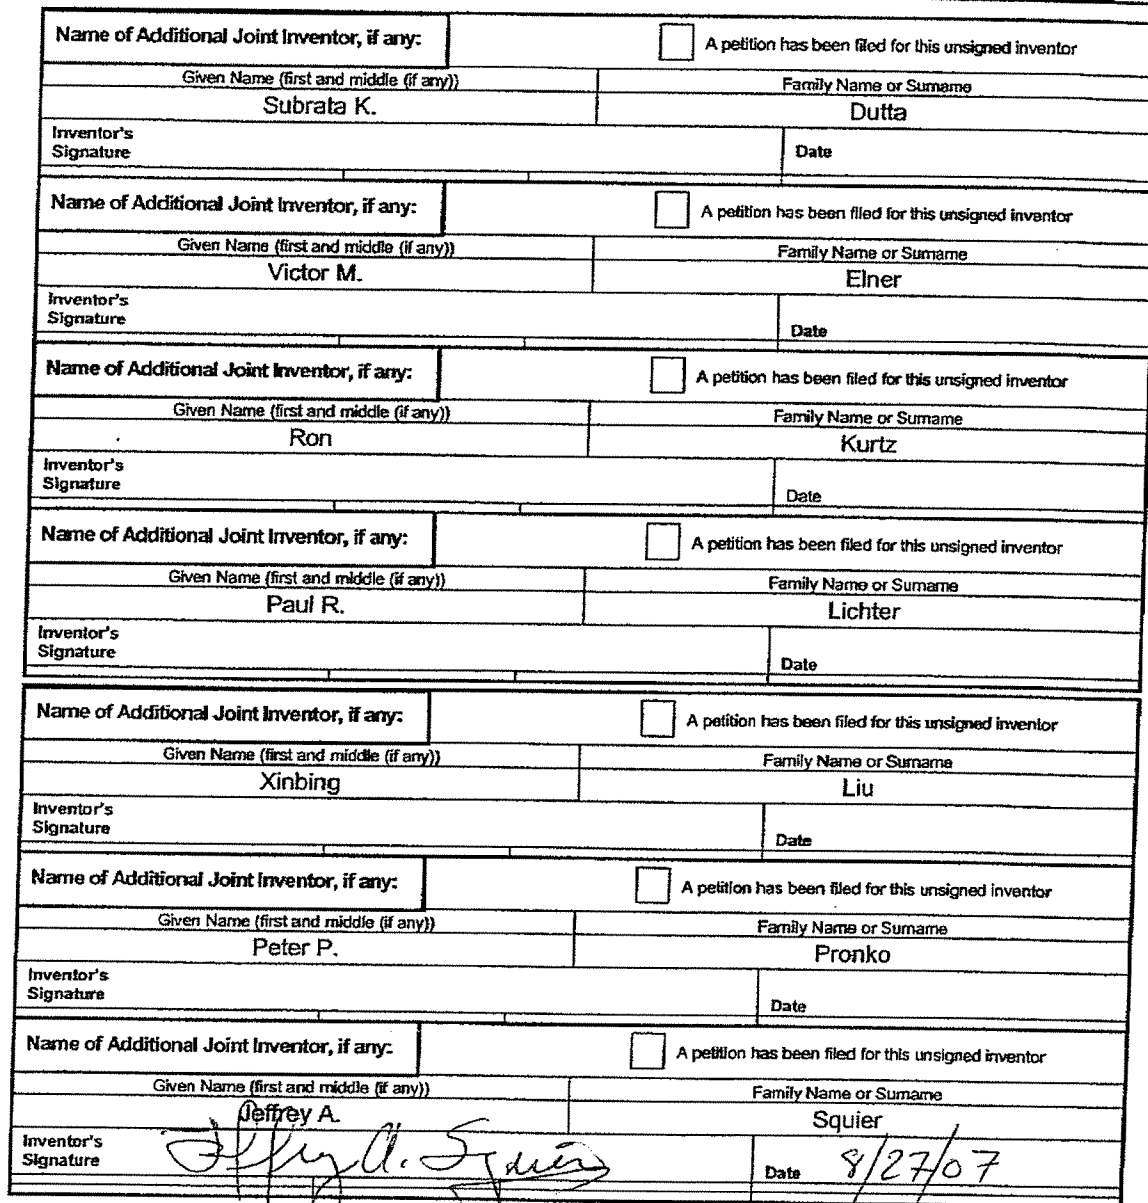 Name of Additional Joint Inventor, if any: A petition has been filed for this unsigned inventor
Given Name (first and middle (if any)) Family Name or Surname
Subrata K. Dutta
Inventor's
Signature Date
Name of Additional Joint Inventor, if any: A petition has been filed for this unsigned inventor
Given Name (first and middle (if any)) Family Name or Surname
Victor M. Elner
Inventor's
Signature Date
Name of Additional Joint Inventor, if any: A petition has been filed for this unsigned inventor
Given Name (first and middle (if any)) Family Name or Surname
Ron Kurtz
Inventor's
Signature Date
Name of Additional Joint Inventor, if any: A petition has been filed for this unsigned inventor
Given Name (first and middle (if any)) Family Name or Surname
Paul R. Lichter
Inventor's
Signature Date
Name of Additional Joint Inventor, if any: A petition has been filed for this unsigned inventor
Given Name (first and middle (if any)) Family Name or Surname
Xinbing Liu
Inventor's
Signature Date
Name of Additional Joint Inventor, if any: A petition has been filed for this unsigned inventor
Given Name (first and middle (if any)) Family Name or Surname
Peter P. Pronko
Inventor's
Signature Date
Name of Additional Joint Inventor, if any: A petition has been filed for this unsigned inventor
Given Name (first and middle (if any)) Family Name or Surname
Jeffrey A. Squier
Inventor's
Signature Jeffrey A. Squier Date 8/27/07